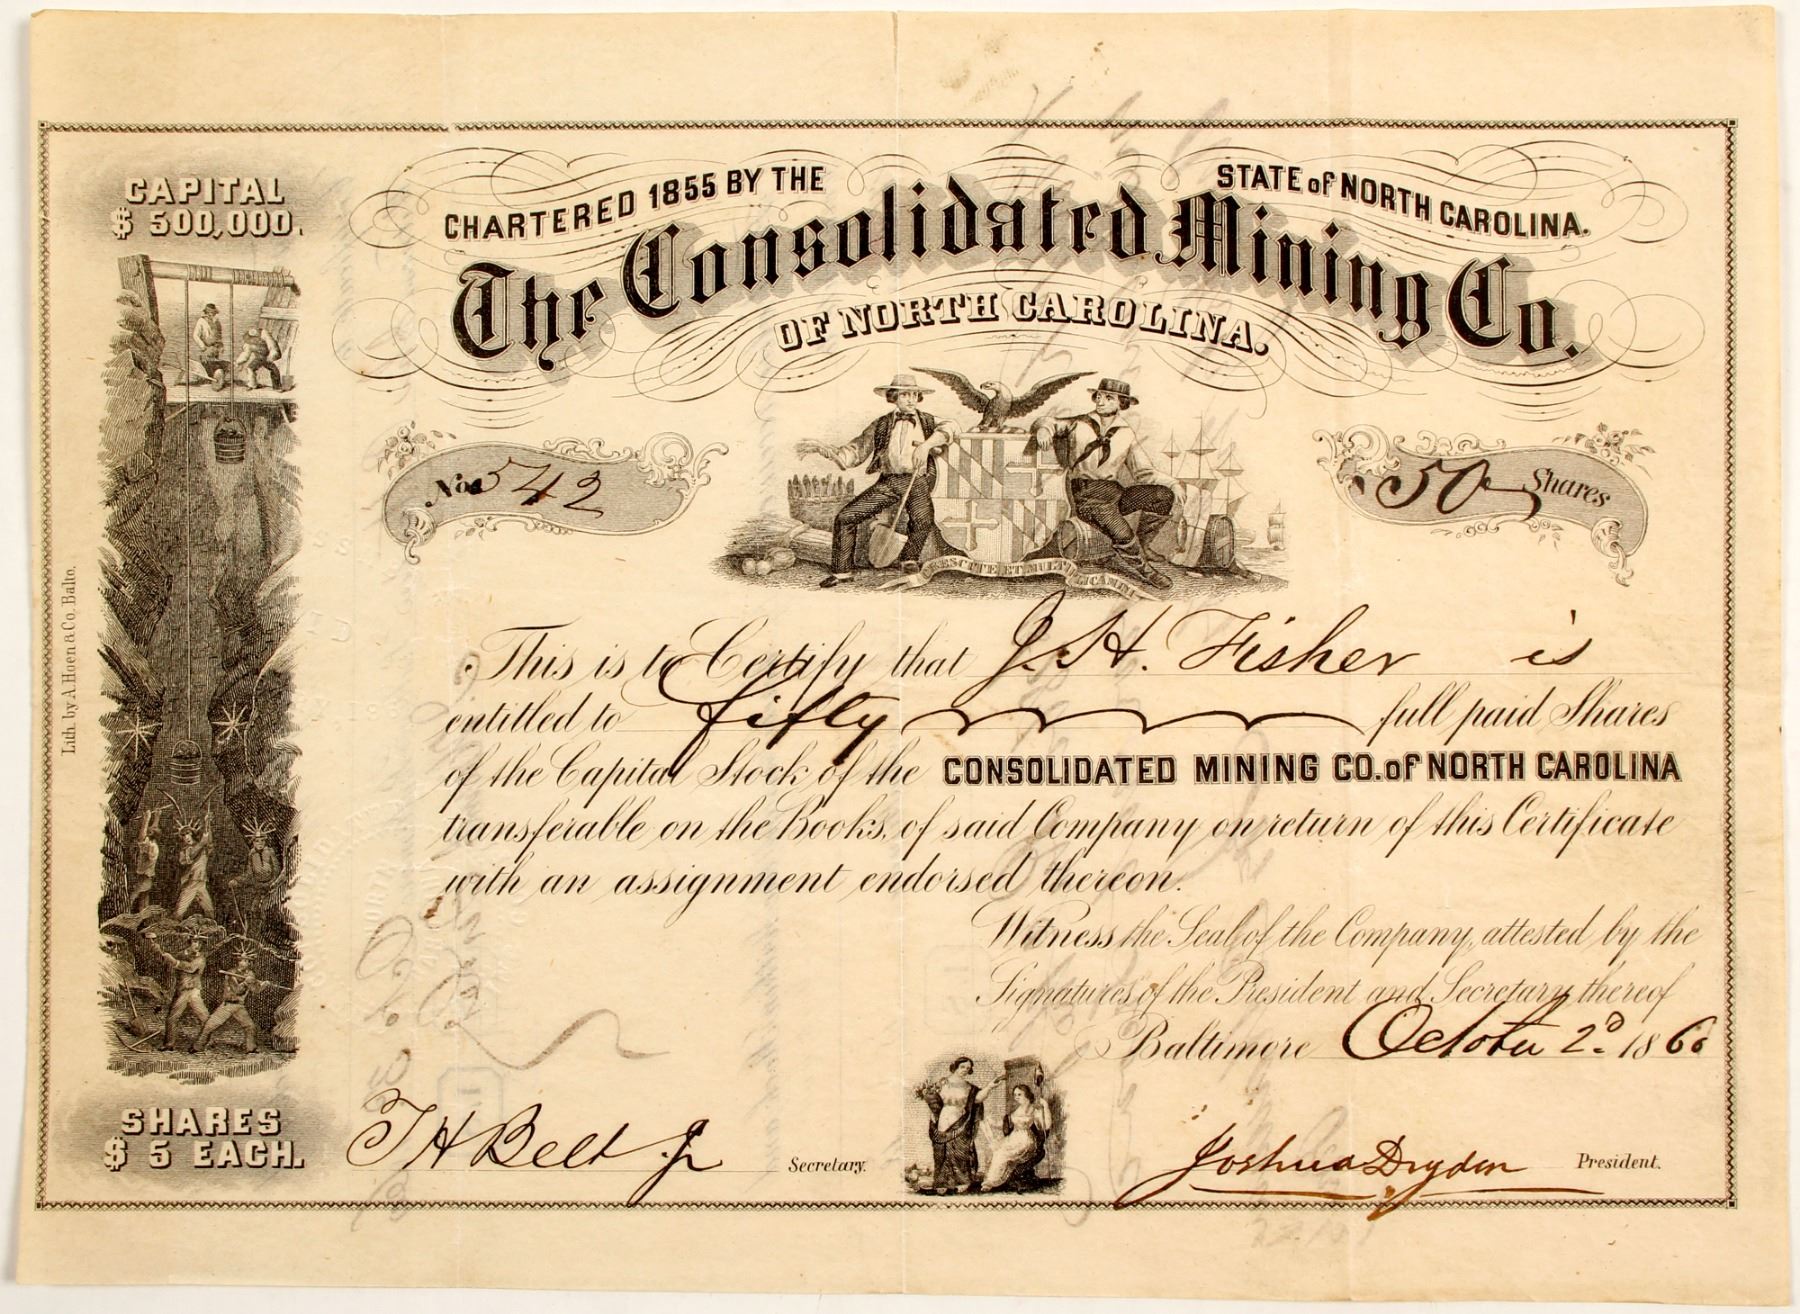 CAPITAL
$ 500,000.
CHARTERED 1855 BY THE STATE of NORTH CAROLINA.
The Consolidated Mining Co.
OF NORTH CAROLINA.
No. 542
50 Shares
CRESCITE ET MULTIPLICAMINI
This is to Certify that J. H. Fisher is
entitled to fifty full paid Shares
of the Capital Stock of the CONSOLIDATED MINING CO. of NORTH CAROLINA
transferable on the Books, of said Company on return of this Certificate
with an assignment endorsed thereon.
Witness the Seal of the Company, attested by the
Signatures of the President and Secretary thereof
Baltimore October 2d. 1860
SHARES
$ 5 EACH.
T H Belt Jr Secretary.
Joshua Dryden President.
Lith. by A. Hoen & Co. Balto.